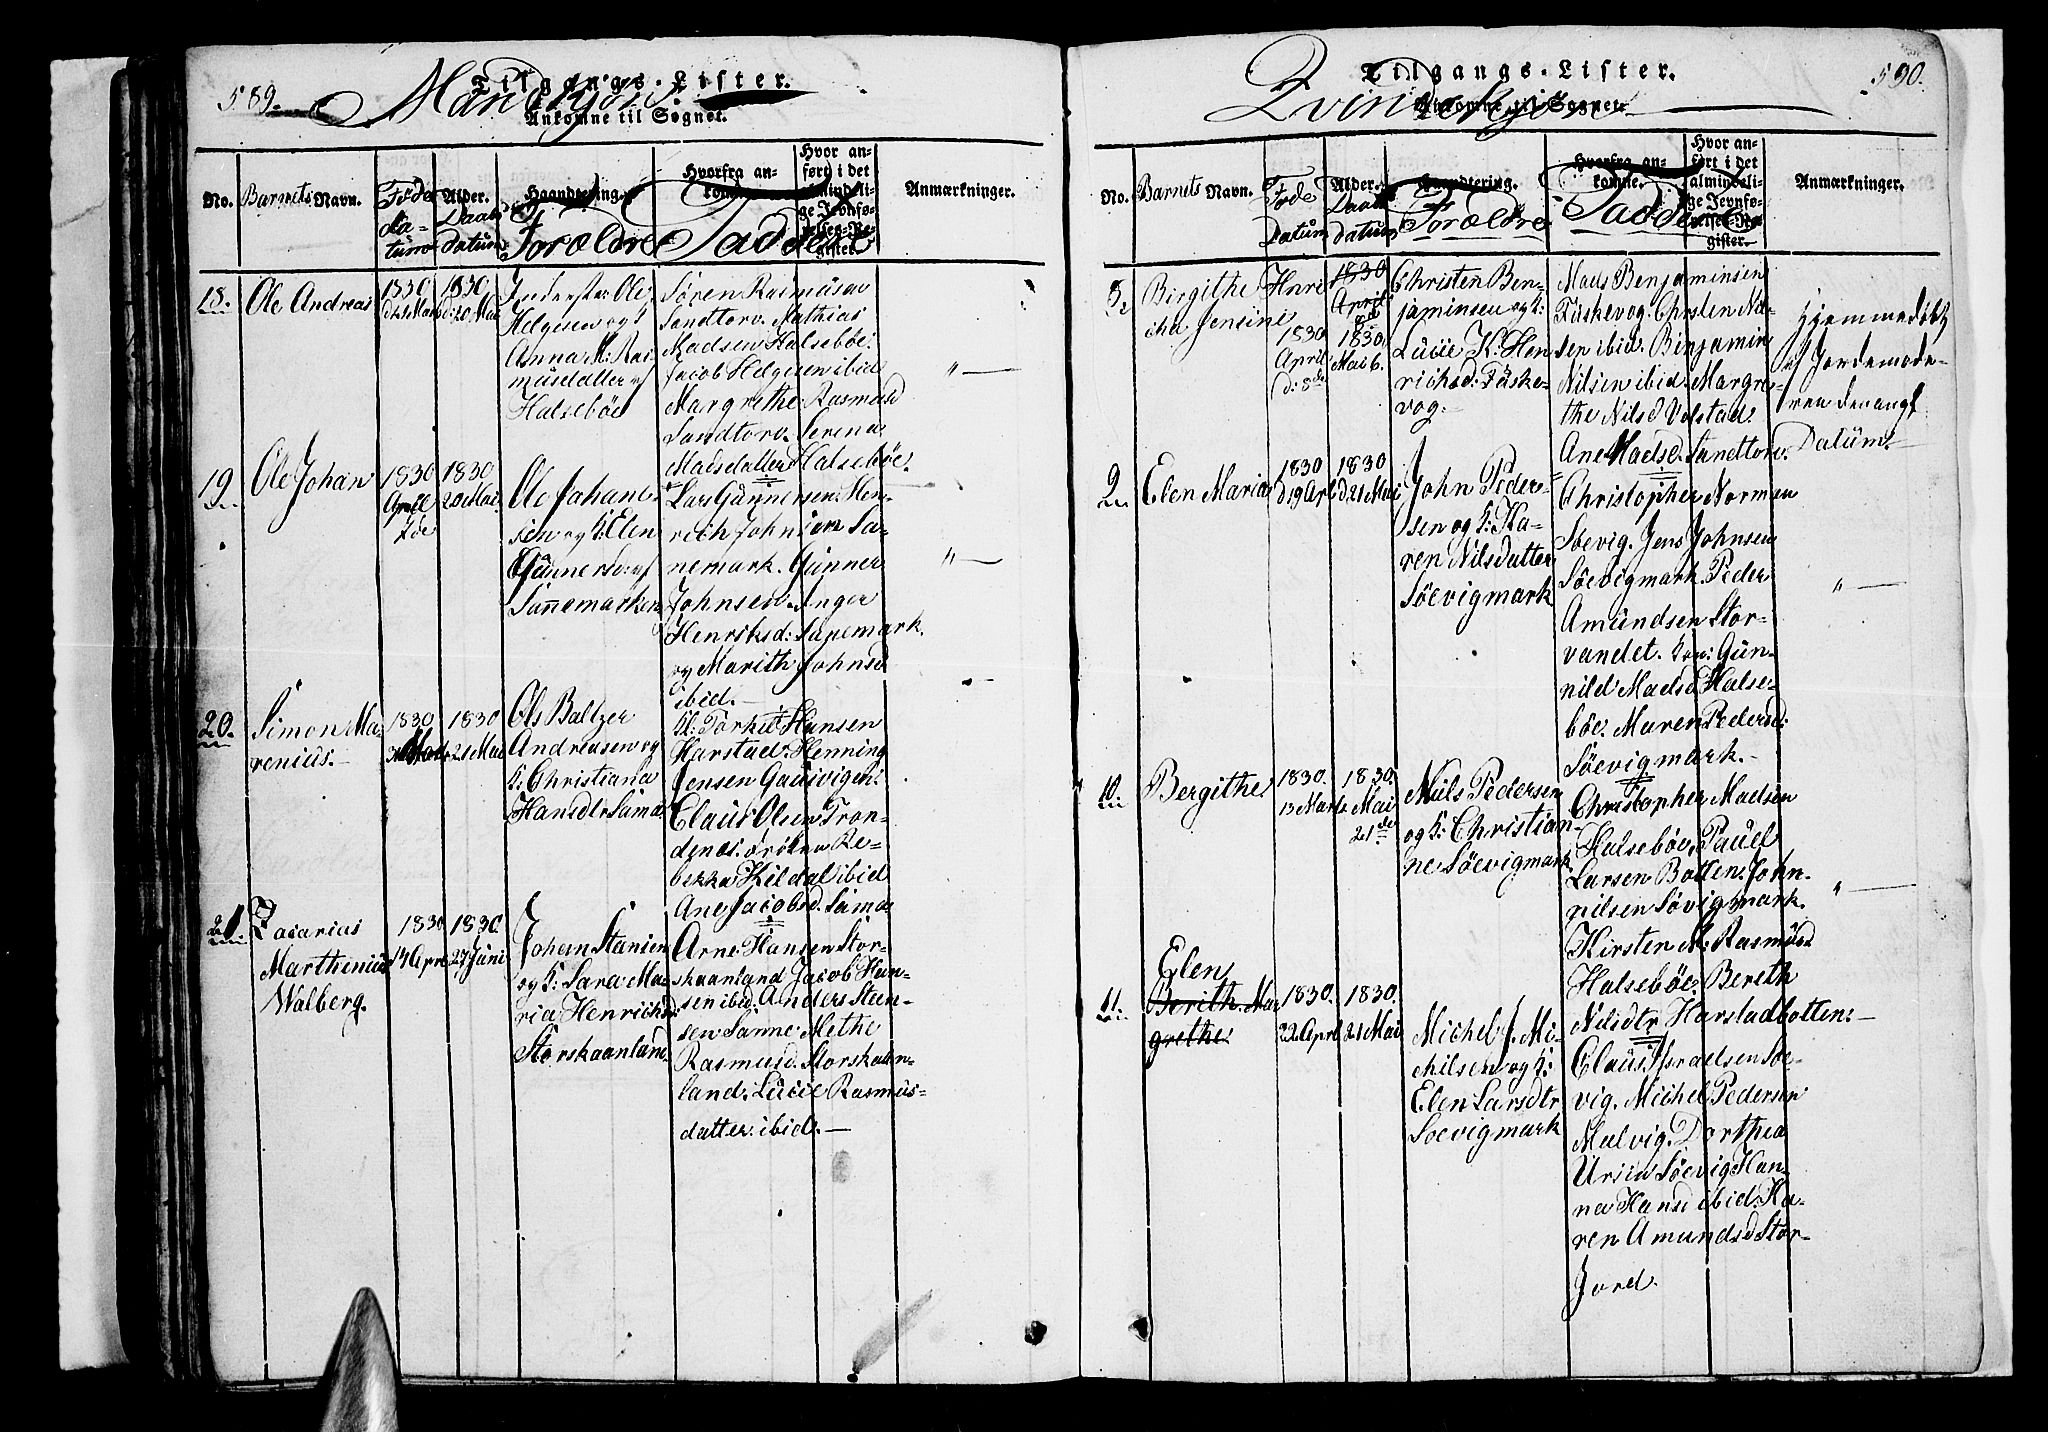 589.
Tilgangs-Lister.
Mandkjøn.
Ankomne til Sognet.
No.
Barnets Navn.
Føde
da-
tum
Alder.
Daabs
datum
Haandtering.
Forældre
Hvorfra an-
komne.
Faddere
Hvor an-
ført i det
almindeli-
ge Jevnfø-
relses-Re-
gister.
Anmærkninger.
18.
Ole Andreas
1830
1830
d: 20 Mai
Inderster Ole
Helgesen og k
Anna M: Ras
musdatter af
Halsebøe
Søren Rasmusen
Sandtorv. Mathias
Madsen Halsebøe.
Jacob Helgesen ibid
Margrethe Rasmusd
Sandtorv. Serena
Madsdatter Halsebøe.
"
19.
Ole Johan
1830
April
1830
20 Mai
Ole Johane-
sen og k: Elen
Gunnersd: af
Sannemarken
Lars Gunnersen. Hen-
rich Johnsen Sa-
nemark. Gunner
Johnsen. Inger
Henriksd: Sanemark.
og Marith Johnsd
ibid.
"
20.
Simon Ma-
renius.
1830
1830
21 Mai
Ols Baltzer
Andreasen og
k: Christiana
Hansdtr Sama
Kl: Torkil Hansen
Harstad. Henning
Jensen Gausvigen.
Claus Olsen Tron-
denes. Frøken Re-
bekka Hildal ibid
Ane Jacobsd. Sama
21.
Zacarius
Marthenius
Walberg.
1830
14 April
1830.
27 Juni
Johan Stenien
og k: Sara Ma-
ria Henrichsd
Storskaanland
Arne Hansen Stor-
skaanland Jacob Han-
sen ibid. Anders Steen-
sen Sanne Methe
Rasmusd. Storskaan-
land. Lucie Rasmus-
datter ibid.
590.
Tilgangs-Lister.
Qvindekjøn
Ankomne til Sognet.
No.
Barnets Navn.
Føde
Datum
Alder.
Daabs
datum
Haandtering.
Forældre
Hvorfra an-
komne.
Faddere
Hvor an-
ført i det
almindeli-
ge Jevnfø-
relses-Re-
gister.
Anmærkninger.
8.
Birgithe Henri-
cha Jensine
1830
April
d: 8de
1830
April
1830.
Mai 6.
Christen Ben-
jaminsen og k:
Lucie K: Hen
richsd: Fuske-
vog.
Maus Benjaminsen
Fuskevog: Christen Niel-
sen ibid. Benjamin
Nilsen ibid. Margre-
the Nilsd Volstad.
Ane Madsd. Sandtorv.
Hjemmedøbt
af Jordemode-
ren den angf
Datum.
9.
Elen Maria
1830
d 19 Apl
1830
d. 21 Mai
John Peders-
sen og k: Ka-
ren Nilsdatter
Søevigmark
Christopher Norman
Søevig. Jens Johnsen
Søevigmark. Peder
Amundsen Stor-
vandet. Jom: Gun-
nild Madsd Halse-
bøe. Maren Pedersd:
Søevigmark.
"
10.
Bergithe
1830.
13 Marts
1830.
Mai
21de
Niels Pedersen
og k: Christian-
ne Søevigmark
Christopher Madsen
Halsebøe. Pauel
Larsen Botten. John
nilsen Søvigmark.
Kirsten M: Rasmusd
Halsebøe. Bereth
Nilsdtr Harstadbotten.
"
11.
Elen
Berith Mar
grethe
1830.
22 April
1830.
21 Mai
Michel J. Mi-
chilsen og k:
Elen Larsdtr
Soevigmark
Claus Israelsen Søe-
vig. Michel Pedersen
Malvig. Dorthea
Ursin Søevig Han-
na Hansd ibid. Ka-
ren Amundsd Stor-
Jord.